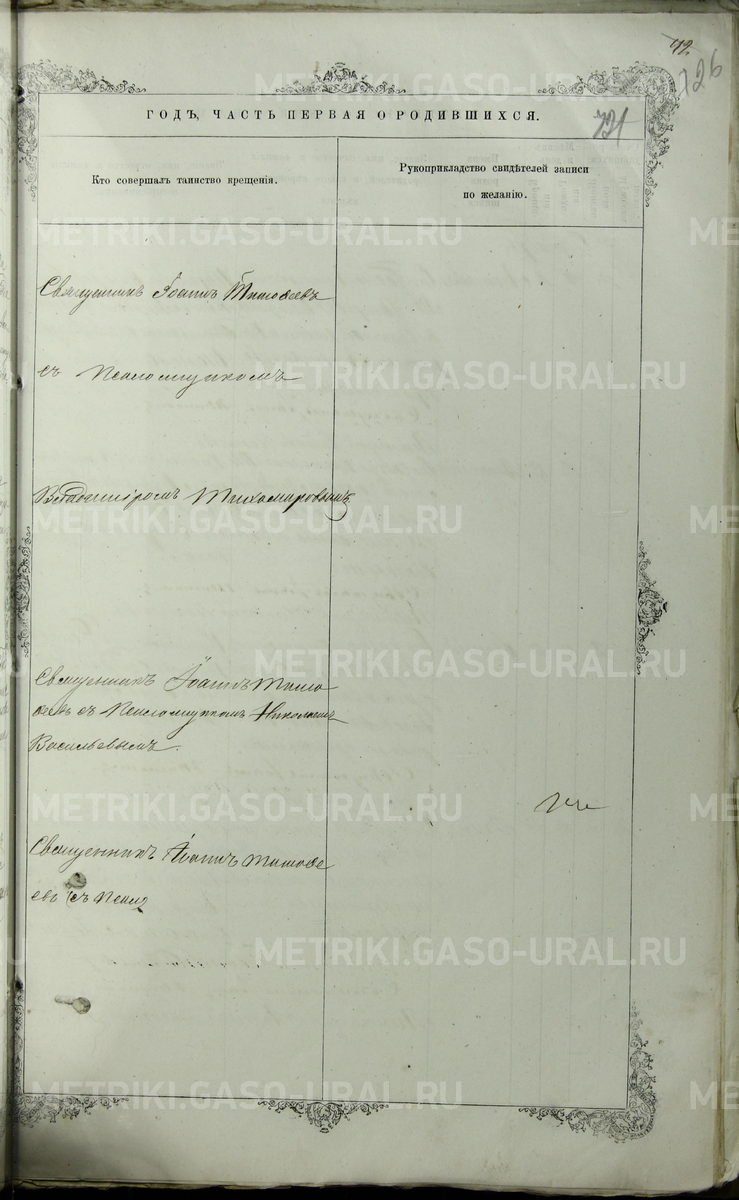 42.
126
721
ГОДЪ, ЧАСТЬ ПЕРВАЯ О РОДИВШИХСЯ.
Кто совершалъ таинство крещенія.
Рукоприкладство свидѣтелей записи
по желанію.
Священникъ Іоаннъ Тимофеевъ
съ Псаломщикомъ
Владиміромъ Тихомировымъ
Священникъ Іоаннъ Тимо
феевъ съ Псаломщикомъ Николаемъ
Васильевымъ.
Священникъ Іоаннъ Тимофе
евъ съ Псало
METRIKI.GASO-URAL.RU